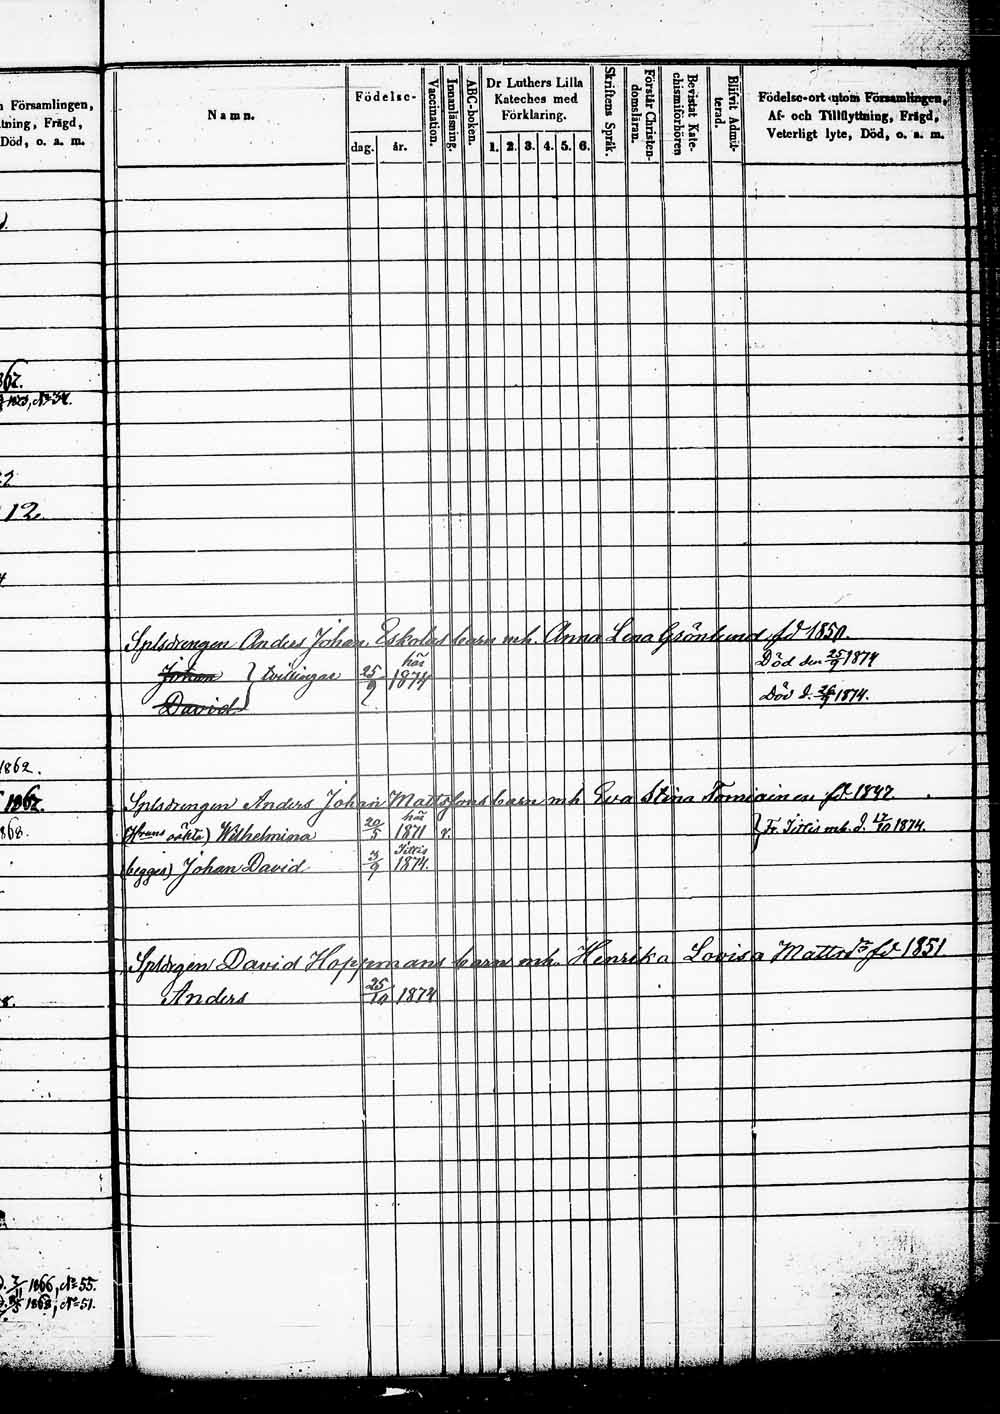 n Församlingen,
ttning, Frägd,
Död, o. a. m.
1862.
1862.
1868.
12.
1866, No 55.
1868, No 51.
Namn.
Födelse-
dag. år.
Vaccination.
Innanläsning.
ABC-boken.
Dr Luthers Lilla
Kateches med
Förklaring.
1. 2. 3. 4. 5. 6.
Skriftens Språk.
Förstår Christen-
domsläran.
Bevistat Kate-
chismiförhören
Blifvit Admit-
terad.
Födelse-ort utom Församlingen,
Af- och Tillflyttning, Frägd,
Veterligt lyte, Död, o. a. m.
Splsdrengen Anders Johan Eskolas barn mh. Anna Lena Grönlund fd 1850.
Johan } tvillingar 25/9 här 1874 Död den 25/9 1874
David Död d. 26/9 1874.
Splsdrengen Anders Johan Mattssons barn mh Eva Stina Tomiainen fd. 1847.
(hrans oäkta) Wilhelmina 20/5 här 1871 v. } Fr. Tittis mh. d. 12/10 1874.
(begges) Johan David 3/9 Tittis 1874.
Spldrgen David Hoppmans barn mh. Henrika Lovisa Mattsdr fd 1851.
Anders 25/10 1874